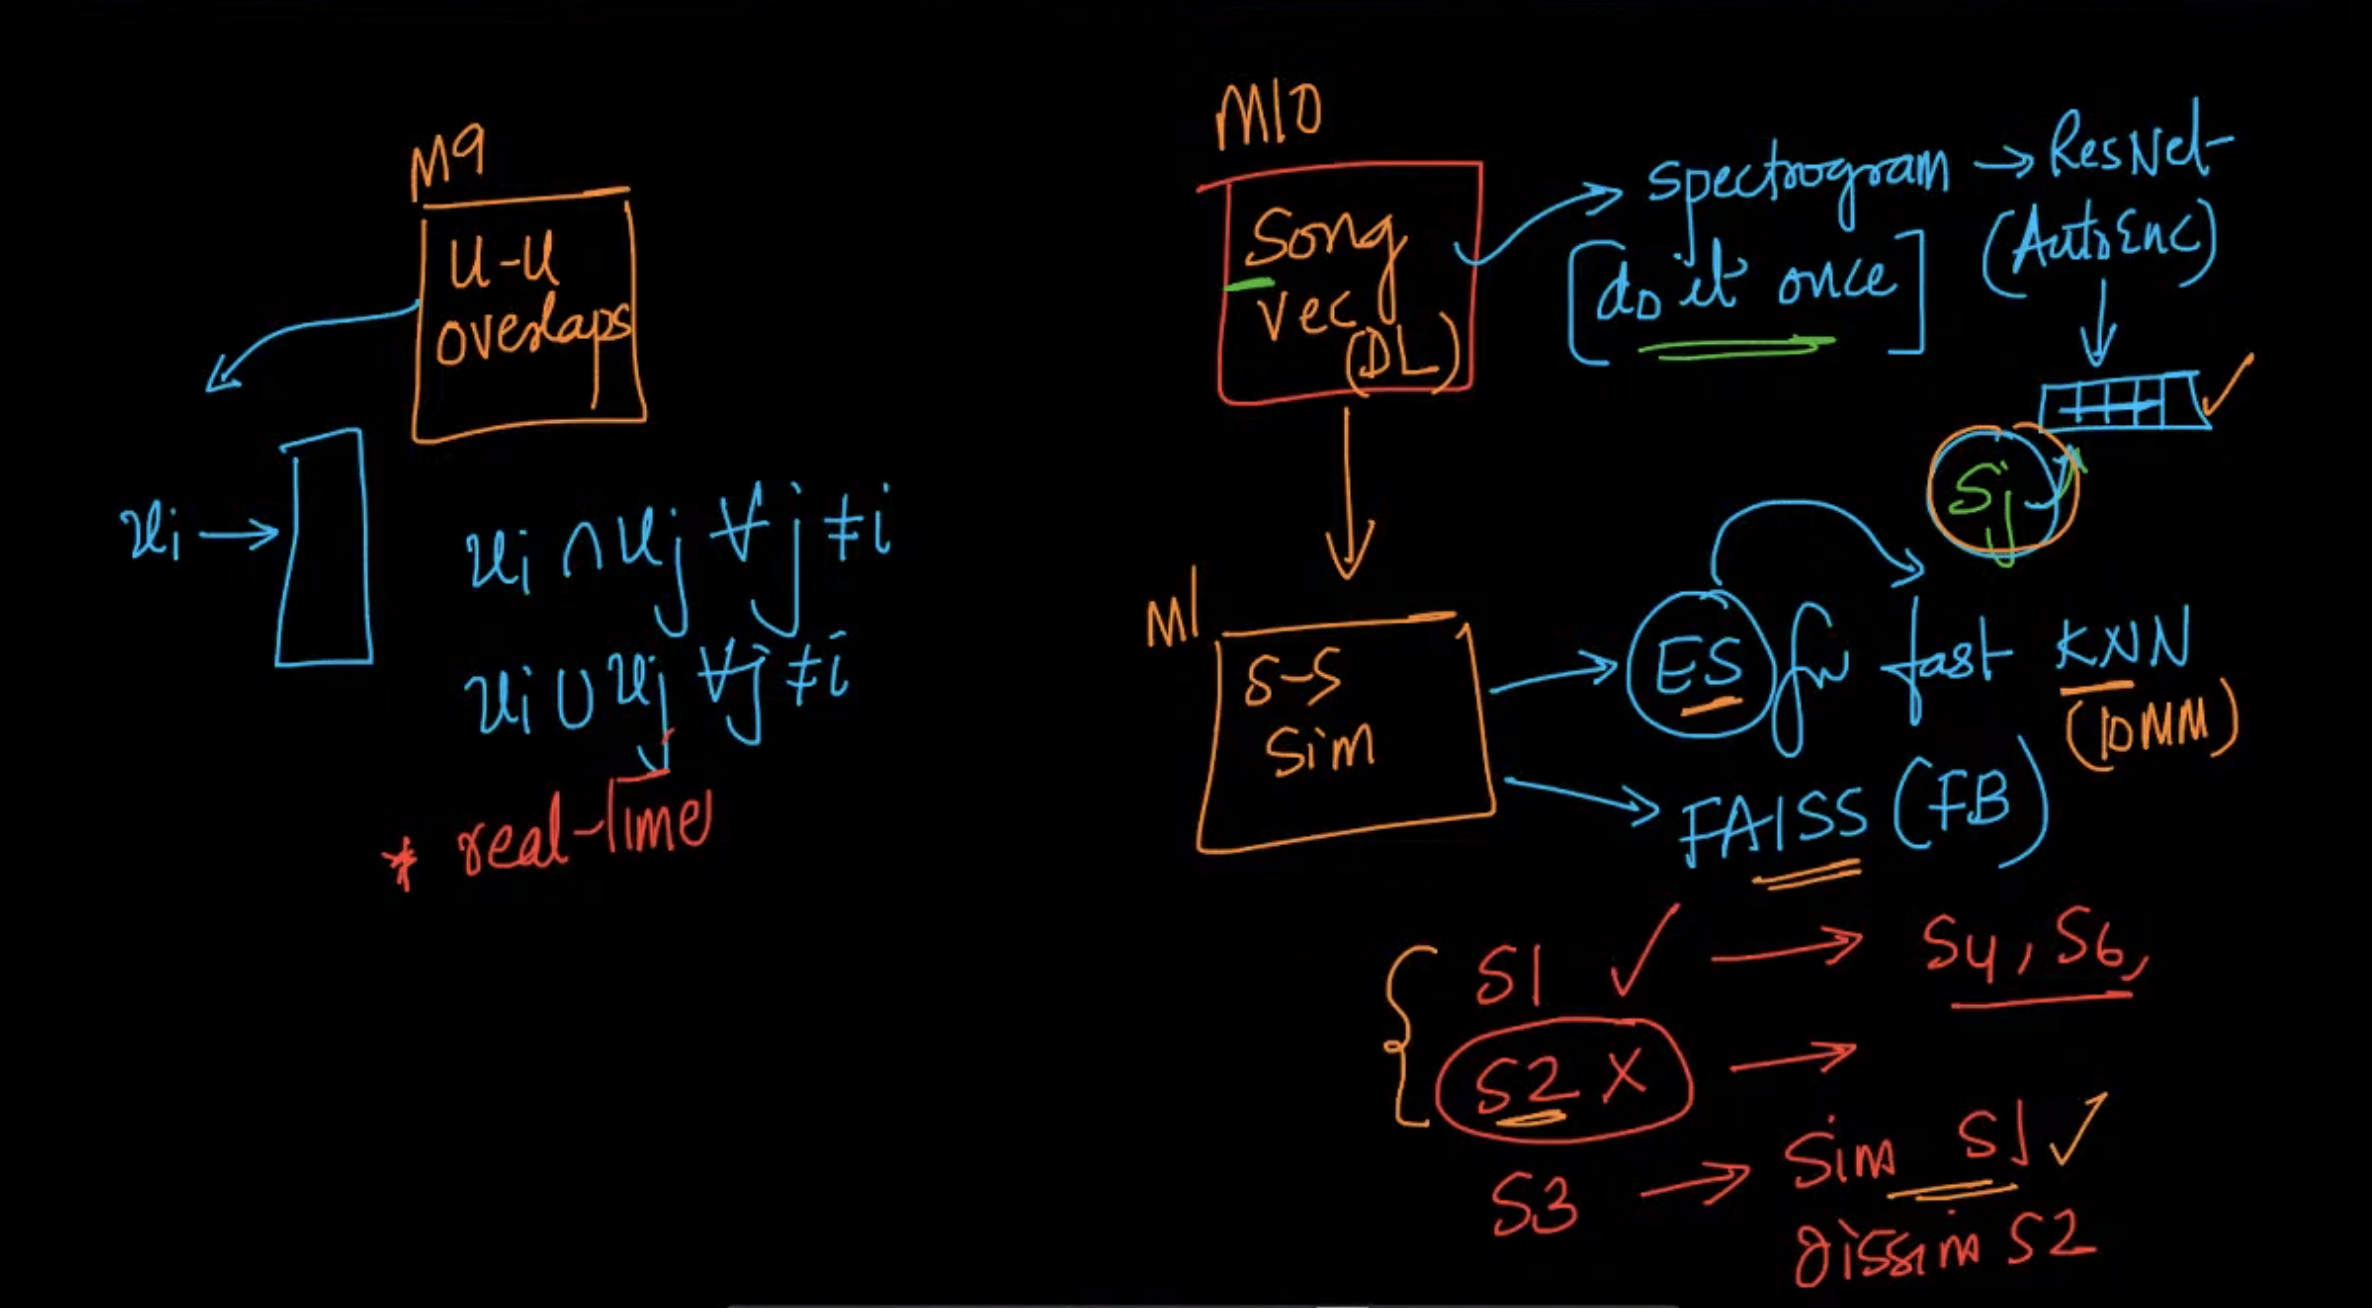 M9
U-U
overlaps
ui →
ui ∩ uj ∀j ≠ i
ui ∪ uj ∀j ≠ i
* real-time
M10
Song
Vec
(DL)
spectrogram → ResNet-
[do it once]
(AutoEnc)
Sj
M1
S-S
Sim
ES for fast KNN
(10MM)
FAISS (FB)
S1 ✓ → S4, S6,
S2 X →
S3 → Sim S1 ✓
Dissim S2